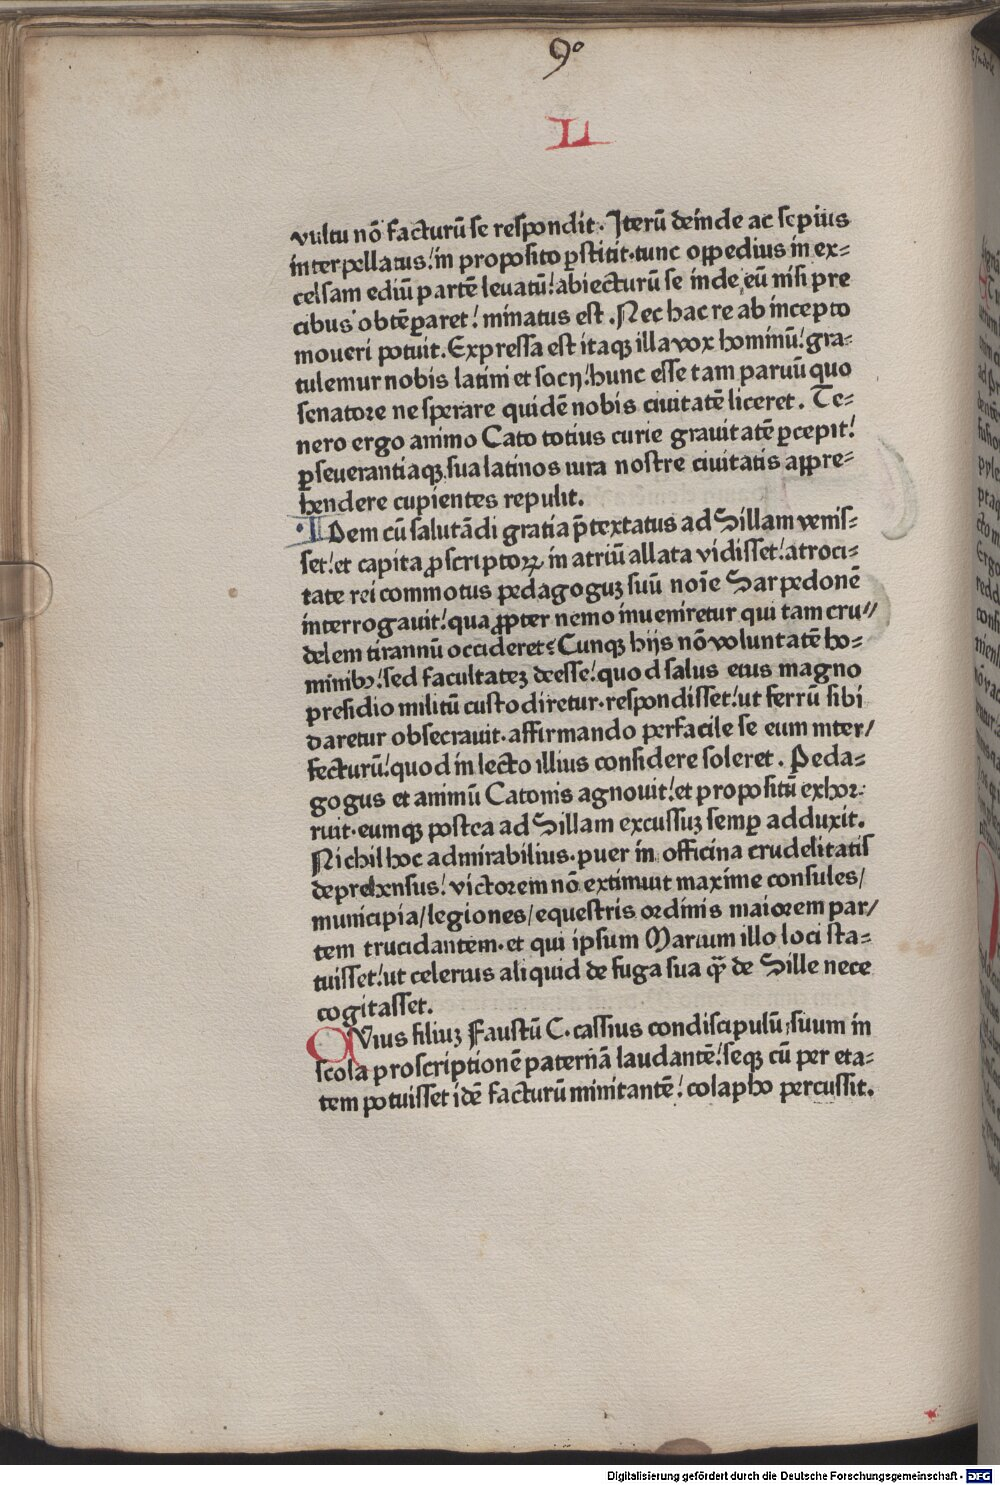 9°
LI
vultu nō facturū se respondit. Iterū deinde ac sepius
interpellatus! in proposito ꝑstitit. tunc oppedius in ex=
celsam ediū partē leuatū! abiecturū se inde eū nisi pre
cibus obtēꝑaret! minatus est. Nec hac re ab incepto
moueri potuit. Expressa est itaqꝫ illa vox hominū! gra=
tulemur nobis latini et socij! hunc esse tam paruū quo
senatore ne sperare quidē nobis ciuitatē liceret. Te=
nero ergo animo Cato totius curie grauitatē ꝑcepit!
ꝑseuerantiaqꝫ sua latinos iura nostre ciuitatis appre=
hendere cupientes repulit.
IDem cū salutādi gratia p̄textatus ad Sillam venis=
set! et capita ꝓscriptoꝝ in atriū allata vidisset! atroci=
tate rei commotus pedagoguꝫ suū noīe Sarpedonē
interrogauit! qua ꝓpter nemo inueniretur qui tam cru//
delem tirannū occideret? Cunqꝫ hijs nō voluntatē ho=
minibꝫ! sed facultateꝫ deesse! quod salus eius magno
presidio militū custodiretur. respondisset! ut ferrū sibi
daretur obsecrauit. affirmando perfacile se eum inter/
fecturū! quod in lecto illius considere soleret. Peda=
gogus et animū Catonis agnouit! et propositū exhor=
ruit. eumqꝫ postea ad Sillam excussuꝫ semꝑ adduxit.
Nichil hoc admirabilius. puer in officina crudelitatis
deprehensus! victorem nō extimuit maxime consules/
municipia/legiones/equestris ordinis maiorem par/
tem trucidantem. et qui ipsum Marium illo loci sta=
tuisset! ut celerius aliquid de fuga sua qꝫ̄ de Sille nece
cogitasset.
QVius filiuꝫ Faustū C. cassius condiscipulū suum in
scola proscriptionē paternā laudantē! seqꝫ cū per eta=
tem potuisset idē facturū minitantē! colapho percussit.
Digitalisierung gefördert durch die Deutsche Forschungsgemeinschaft - DFG